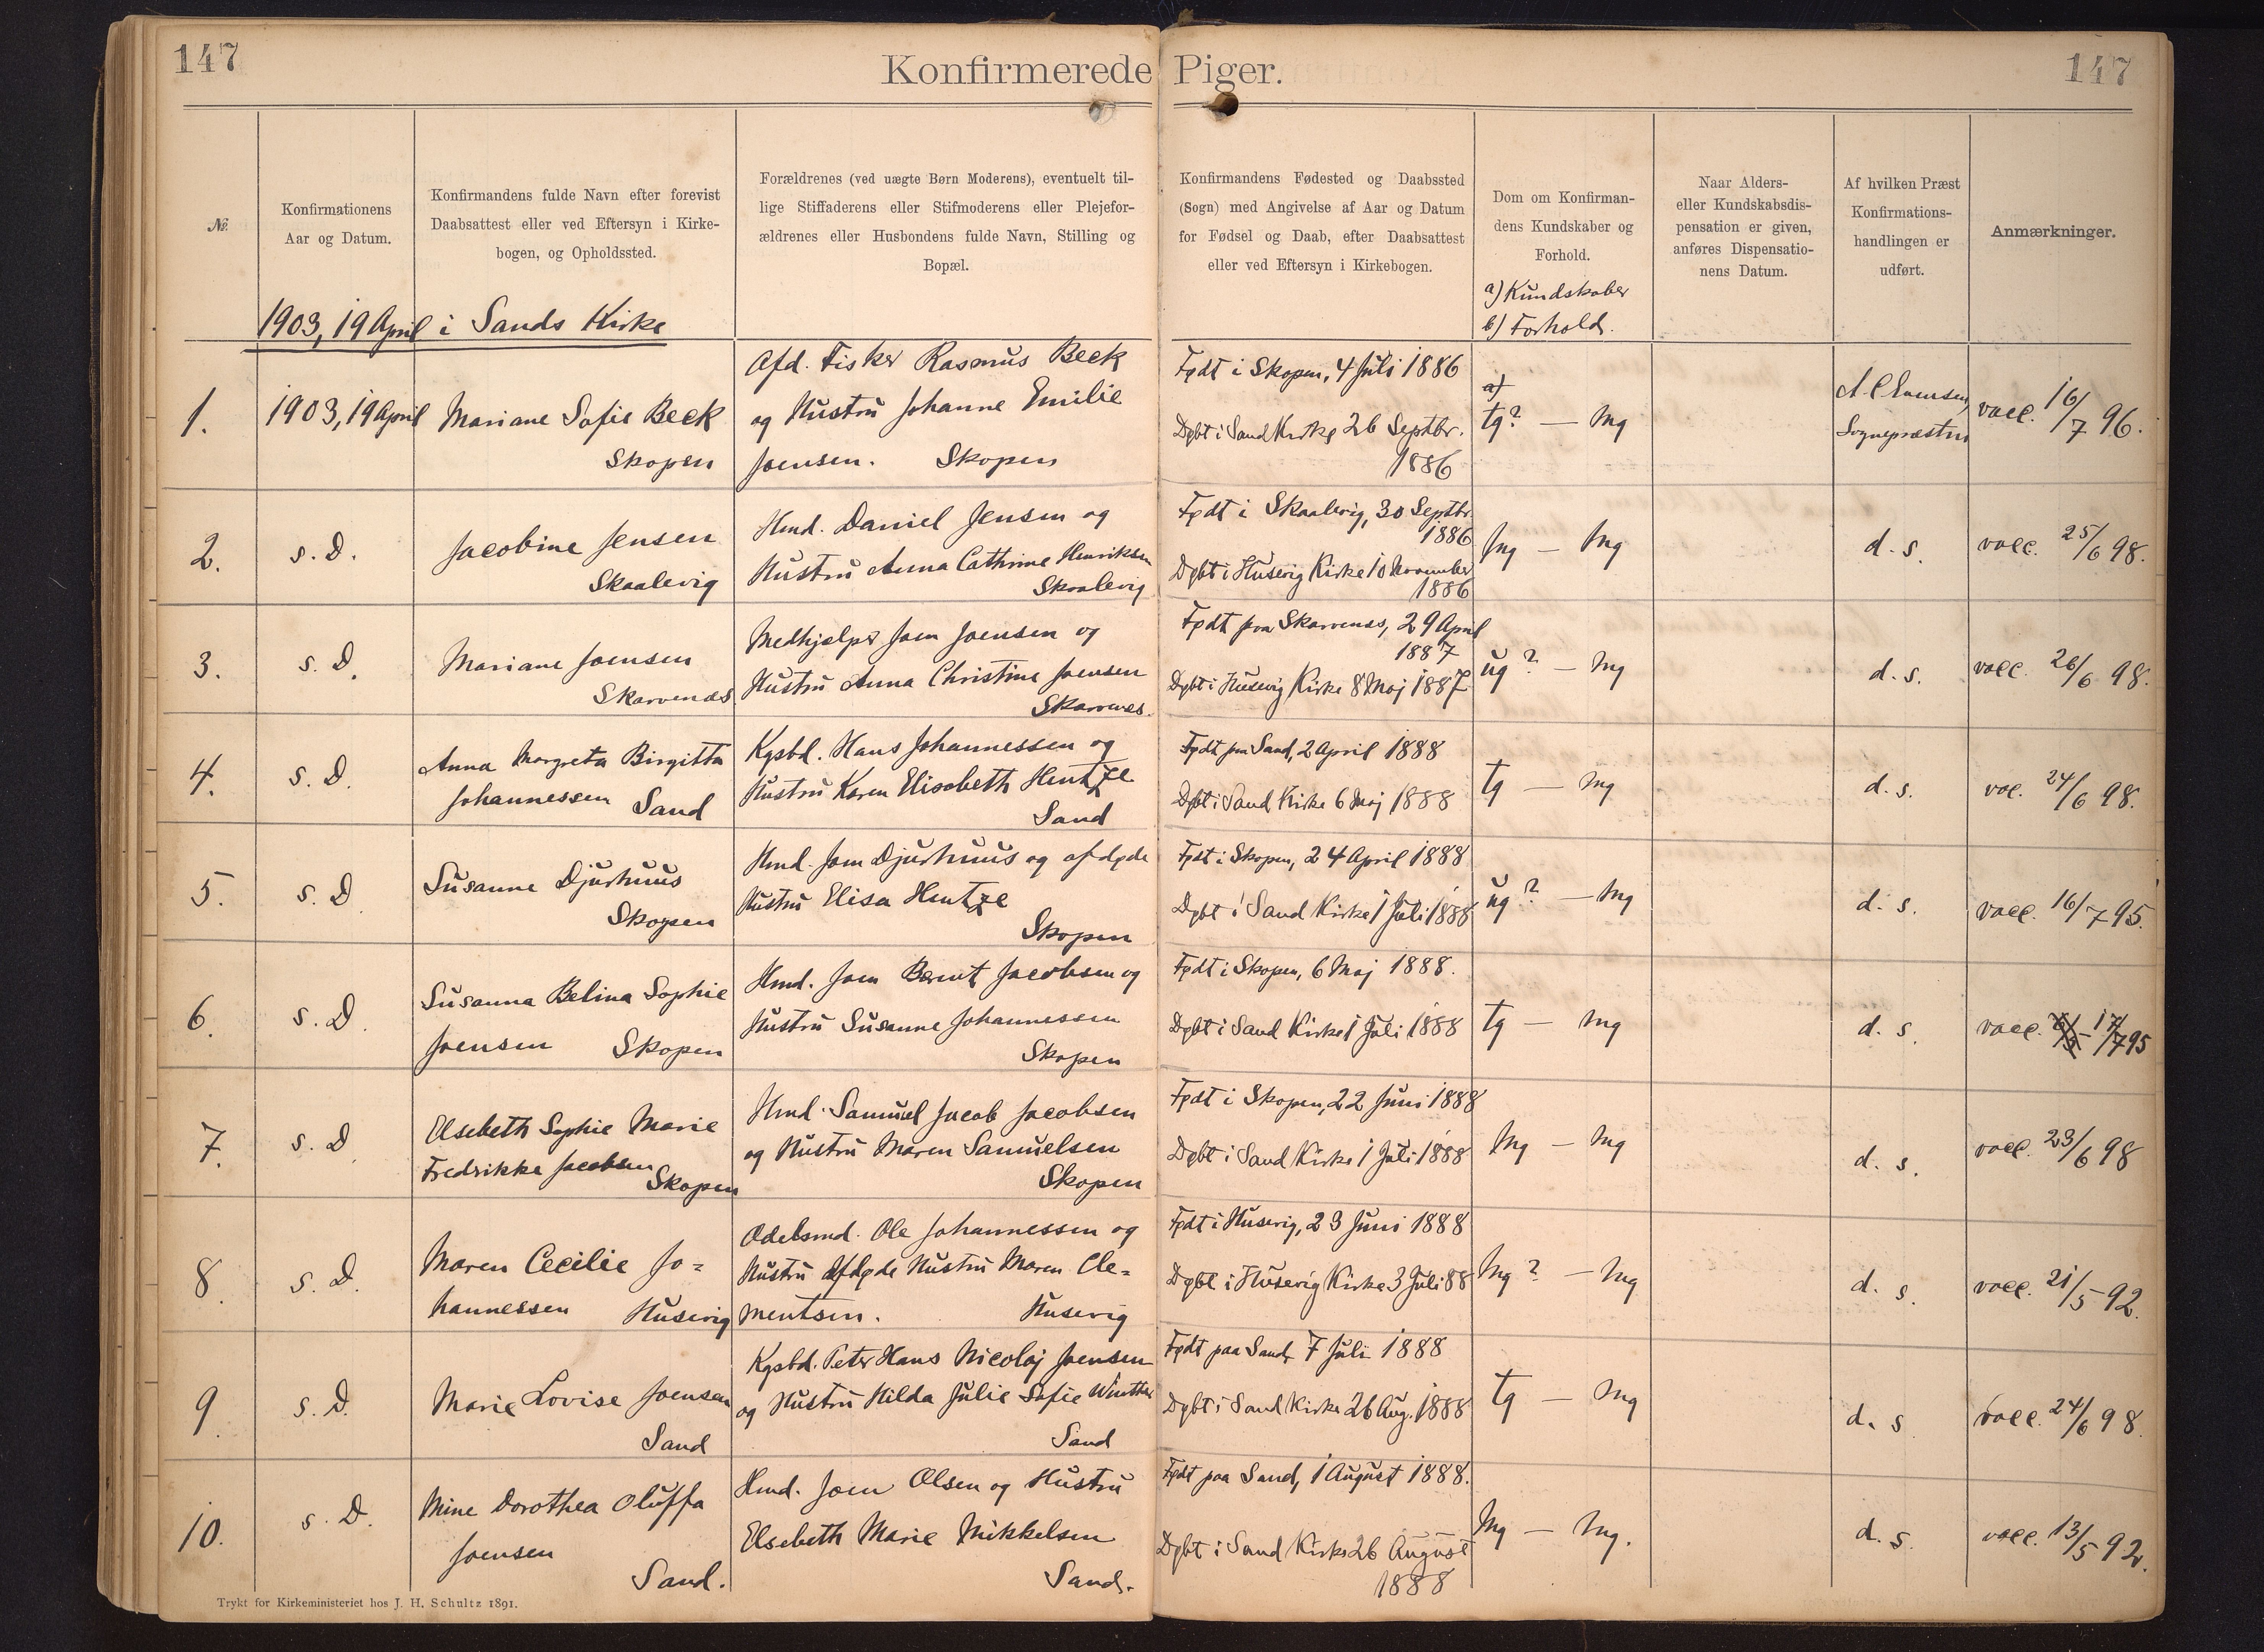 147
Konfirmerede Piger.
147
№
Konfirmationens
Aar og Datum.
Konfirmandens fulde Navn efter forevist
Daabsattest eller ved Eftersyn i Kirke-
bogen, og Opholdssted.
Forældrenes (ved uægte Børn Moderens), eventuelt til-
lige Stiffaderens eller Stifmoderens eller Plejefor-
ældrenes eller Husbondens fulde Navn, Stilling og
Bopæl.
Konfirmandens Fødested og Daabssted
(Sogn) med Angivelse af Aar og Datum
for Fødsel og Daab, efter Daabsattest
eller ved Eftersyn i Kirkebogen.
Dom om Konfirman-
dens Kundskaber og
Forhold.
a) Kundskaber
b) Forhold.
Naar Alders-
eller Kundskabsdis-
pensation er given,
anføres Dispensatio-
nens Datum.
Af hvilken Præst
Konfirmations-
handlingen er
udført.
Anmærkninger.
1903, 19 April i Sands Kirke
1.
1903, 19 April
Mariane Sofie Beck
Skopen
Afd. Fisker Rasmus Beck
og Hustru Johanne Emilie
Joensen. Skopen
Født i Skopen, 4 Juli 1886
Døbt i Sand Kirke 26 Septbr.
1886
a)
tg? — mg
Sognepræsten
vacc. 16/7 96.
2.
s. D.
Jacobine Jensen
Skaalevig
Hmd. Daniel Jensen og
Hustru Anna Cathrine Henriksen
Skaalevig
Født i Skaalevig, 30 Septbr.
1886
Døbt i Husevig Kirke 10 November
1886
mg — mg
d. s.
vacc. 25/6 98.
3.
s. D.
Mariane Joensen
Skarvenæs
Medhjælper Joen Joensen og
Hustru Anna Christine Joensen
Skarvenæs.
Født paa Skarvenæs, 29 April
1887
Døbt i Husevig Kirke 8 Maj 1887
ug? — mg
d. s.
vacc. 26/6 98.
4.
s. D.
Anna Margreta Birgitta
Johannessen Sand
Kgsbd. Hans Johannessen og
Hustru Karen Elisabeth Hentze
Sand
Født paa Sand, 2 April 1888
Døbt i Sand Kirke 6 Maj 1888
tg — mg
d. s.
vac. 24/6 98.
5.
s. D
Susanne Djurhuus
Skopen
Hmd. Joen Djurhuus og afdøde
Hustru Elisa Hentze
Skopen
Født i Skopen, 24 April 1888
Døbt i Sand Kirke 1 Juli 1888
ug? — mg
d. s.
vacc. 16/7 95.
6.
s. D.
Susanna Belina Sophie
Joensen Skopen
Hmd. Joen Berent Jacobsen og
Hustru Susanne Johannessen
Skopen
Født i Skopen, 6 Maj 1888.
Døbt i Sand Kirke 1 Juli 1888
tg — mg
d. s.
vacc. 17/7 95
7.
s. D
Elsebeth Sophie Marie
Fredrikke Jacobsen
Skopen
Hmd. Samuel Jacob Jacobsen
og Hustru Maren Samuelsen
Skopen
Født i Skopen, 22 Juni 1888
Døbt i Sand Kirke 1 Juli 1888
mg — mg
d. s.
vacc. 23/6 98
8.
s. D.
Maren Cecilie Jo=
hannessen Husevig
Odelsmd. Ole Johannessen og
Hustru Afdøde Hustru Maren Cle=
mentsen. Husevig
Født i Husevig, 23 Juni 1888
Døbt i Husevig Kirke 3 Juli 88
mg? — mg
d. s.
vacc. 21/5 92.
9.
s. D.
Marie Lovise Joensen
Sand
Kgsbd. Peter Hans Nicolaj Joensen
og Hustru Hilda Julie Sofie Winther
Sand
Født paa Sand 7 Juli 1888
Døbt i Sand Kirke 26 Aug. 1888
tg — mg
d. s
vacc. 24/6 98.
10.
s. D.
Mine Dorothea Oluffa
Joensen
Sand.
Hmd. Joen Olsen og Hustru
Elsebeth Marie Mikkelsen
Sand.
Født paa Sand, 1 August 1888.
Døbt i Sand Kirke 26 August
1888
mg — mg.
d. s.
vacc. 13/5 92.
Trykt for Kirkeministeriet hos J. H. Schultz 1891.